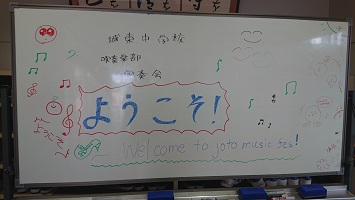 城東中学校
吹奏楽部
演奏会
ようこそ!
ようこそ
Welcome to joto music fes!